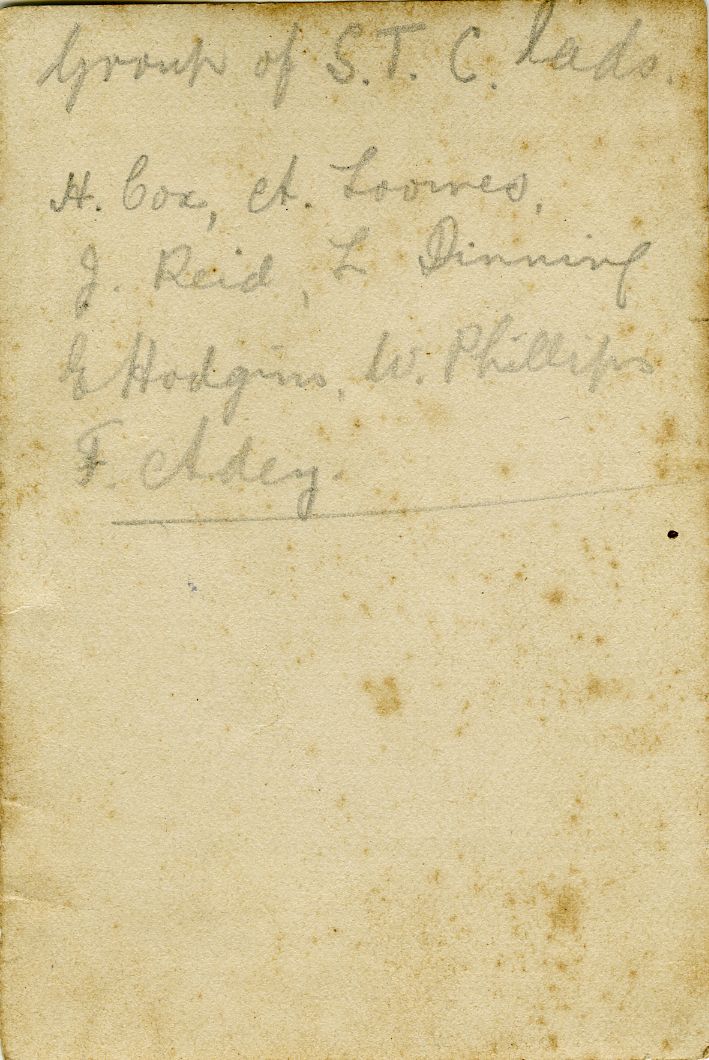 Group of S.T.C. lads.
H. Cox, A. Loowes,
J. Reid, L Dinning
E Hodgins, W. Phillips
F. Adey.